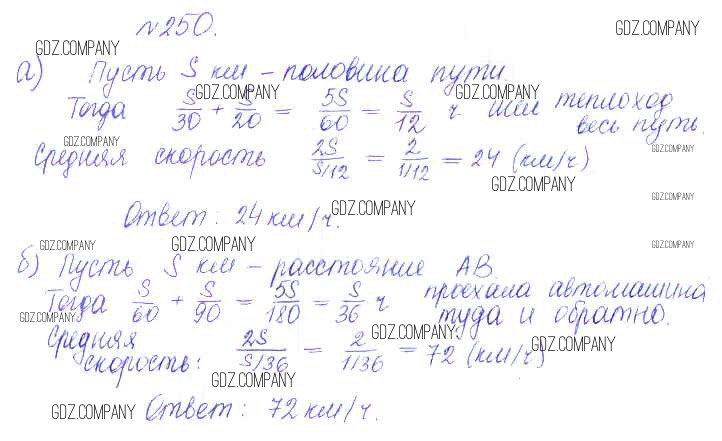 №250.
GDZ.COMPANY GDZ.COMPANY
а) Пусть S км – половина пути.
GDZ.COMPANY GDZ.COMPANY
Тогда S/30 + S/20 = 5S/60 = S/12 ч шел теплоход
весь путь.
GDZ.COMPANY GDZ.COMPANY
Средняя скорость 2S/S/12 = 2/1/12 = 24 (км/ч)
GDZ.COMPANY
GDZ.COMPANY
Ответ: 24 км/ч.
GDZ.COMPANY
GDZ.COMPANY GDZ.COMPANY GDZ.COMPANY
б) Пусть S км – расстояние АВ.
Тогда S/60 + S/90 = 5S/180 = S/36 ч проехала автомашина
туда и обратно.
GDZ.COMPANY
GDZ.COMPANY GDZ.COMPANY
Средняя
скорость: 2S/S/36 = 2/1/36 = 72 (км/ч)
GDZ.COMPANY
GDZ.COMPANY
Ответ: 72 км/ч.